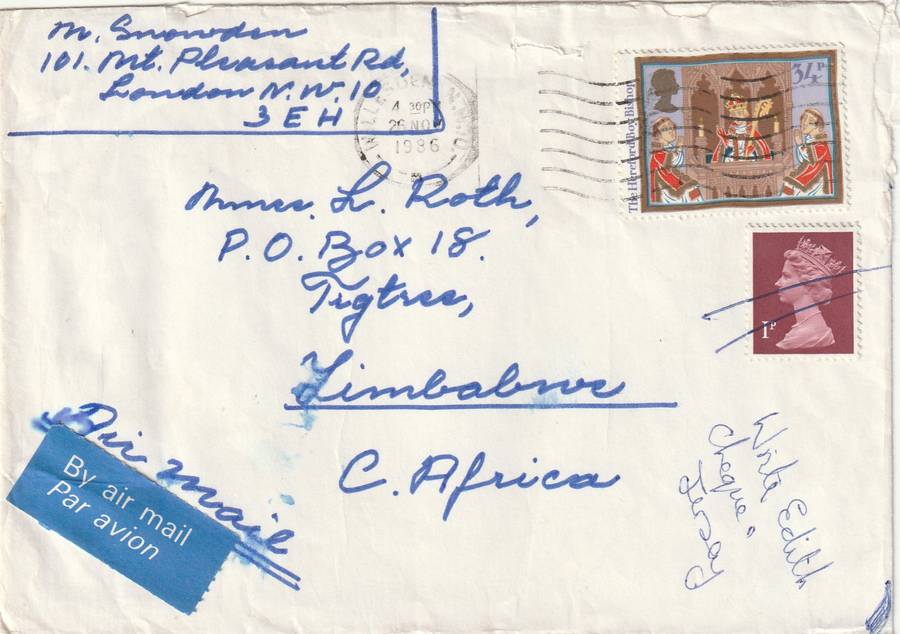 M. Snowden
101. Mt. Pleasant Rd,
London N.W.10
3 E H
WILLESDEN N.W.10
4 30PM
26 NOV
1986
34P
The Hereford Boy Bishop
Mmes. L. Roth,
P.O. Box 18.
Tigtrse,
Zimbabwe
C. Africa
1P
Air Mail
By air mail
Par avion
Write Edith
Cheque.
Jersey